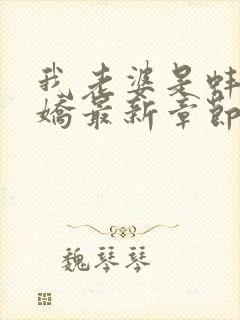 我老婆是蚌
嬌最新章節
魏琴琴